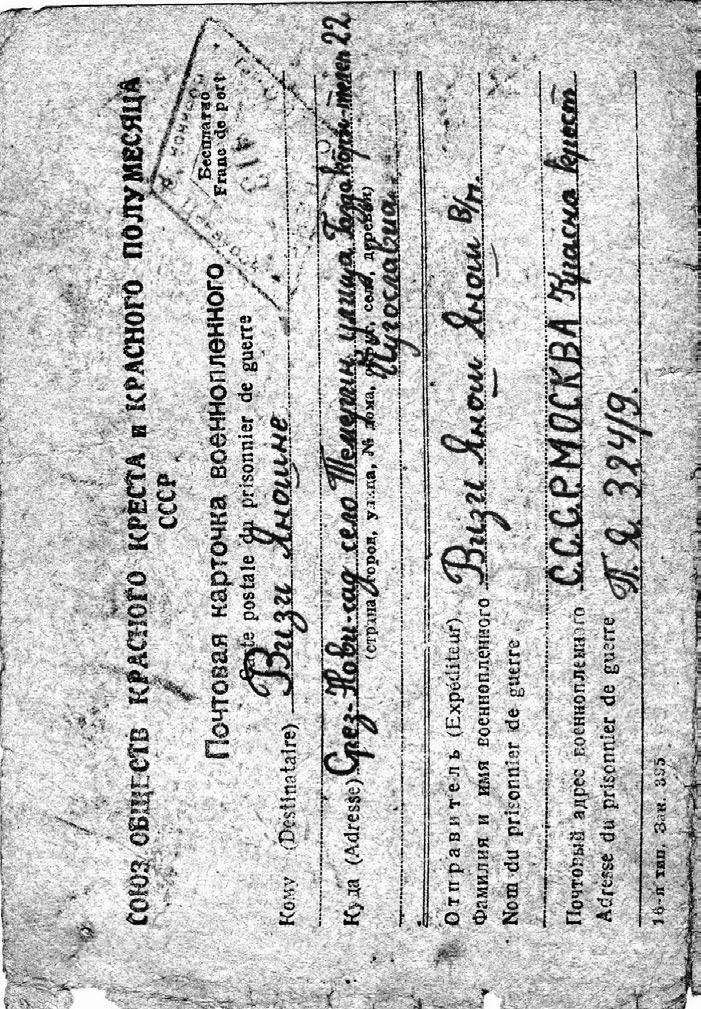 СОЮЗ ОБЩЕСТВ КРАСНОГО КРЕСТА и КРАСНОГО ПОЛУМЕСЯЦА
СССР
Бесплатно
Franc de port
Почтовая карточка военнопленного
postale du prisonnier de guerre
Кому (Destinataire) Визи Яношне
Куда (Adresse) Срез-Нови-сад село Темерин улица 22
(страна, город, улица, № дома, округ, село, деревня)
Югославиа
Отправитель (Expéditeur)
Фамилия и имя военнопленного Визи Янош Янош В/п.
Nom du prisonnier de guerre
Почтовый адрес военнопленного С.С.С.Р. МОСКВА Красна крест
Adresse du prisonnier de guerre П. Я. 324/9.
16-я тип. Зак. 895